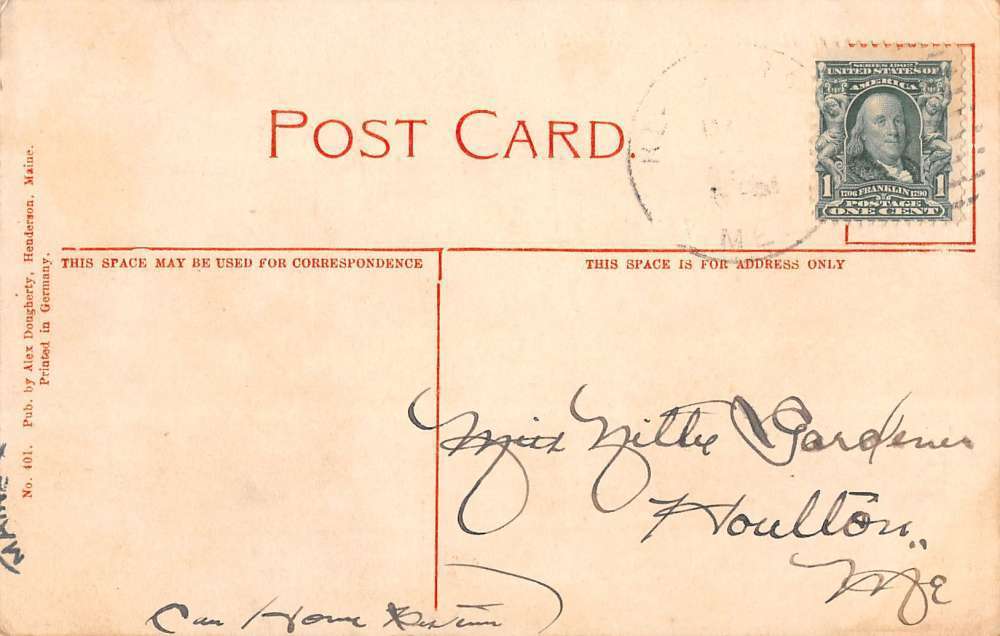 POST CARD.
SERIES 1902
UNITED STATES OF
AMERICA
1 1706 FRANKLIN 1790 1
POSTAGE
ONE CENT
ME
THIS SPACE MAY BE USED FOR CORRESPONDENCE
THIS SPACE IS FOR ADDRESS ONLY
No. 401. Pub. by Alex Dougherty, Henderson, Maine.
Printed in Germany.
MAINE
Miss Nittie Gardener
Houlton,
Me
Can Home